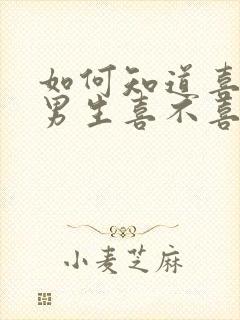 如何知道喜
男生喜不喜
小麦芝麻